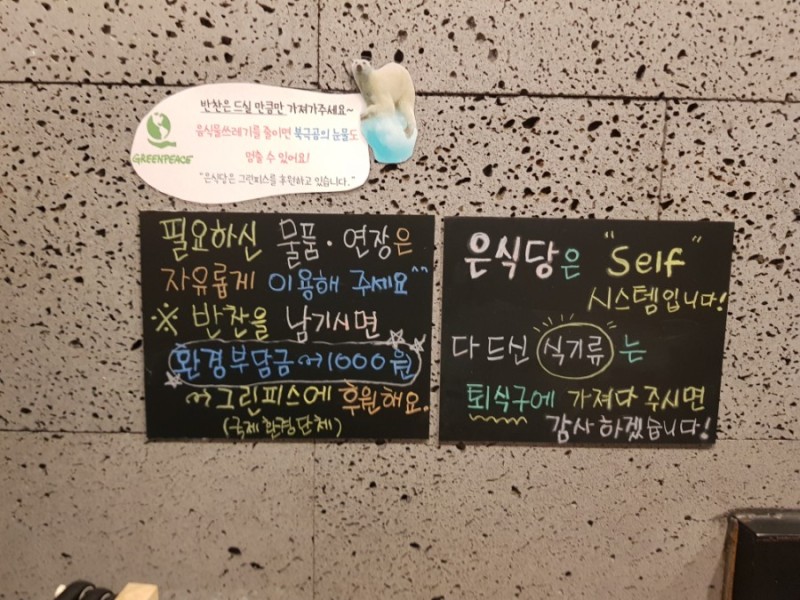 반찬은 드실 만큼만 가져가주세요~
음식물쓰레기를 줄이면 북극곰의 눈물도
멈출 수 있어요!
"은식당은 그린피스를 후원하고 있습니다."
GREENPEACE
필요하신 물품·연장은
자유롭게 이용해 주세요^^
※ 반찬을 남기시면
환경부담금~>1000원
~>그린피스에 후원해요.
(국제환경단체)
은식당은 "Self"
시스템입니다!
다 드신 식기류는
퇴식구에 가져다 주시면
감사하겠습니다!